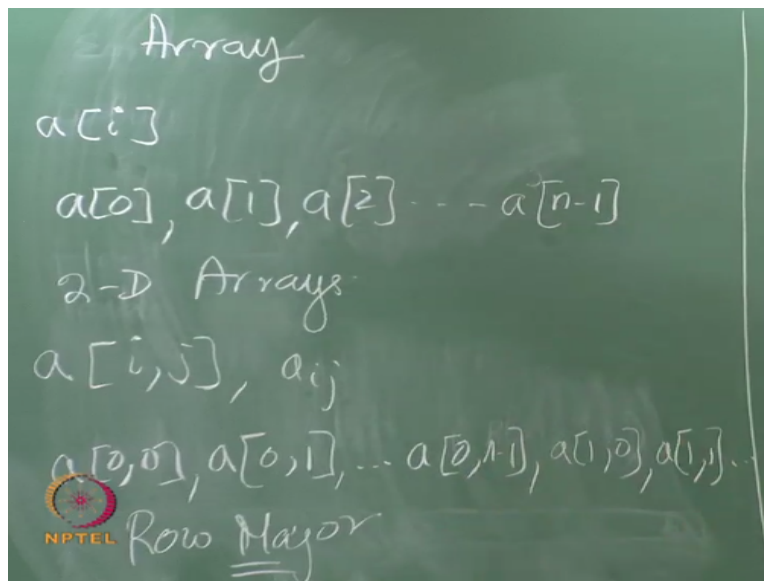 Array
a[i]
a[0], a[1], a[2] ---- a[n-1]
2-D Arrays
a[i,j], aij
a[0,0], a[0,1], ... a[0,n-1], a[1,0], a[1,1]...
NPTEL
Row Major